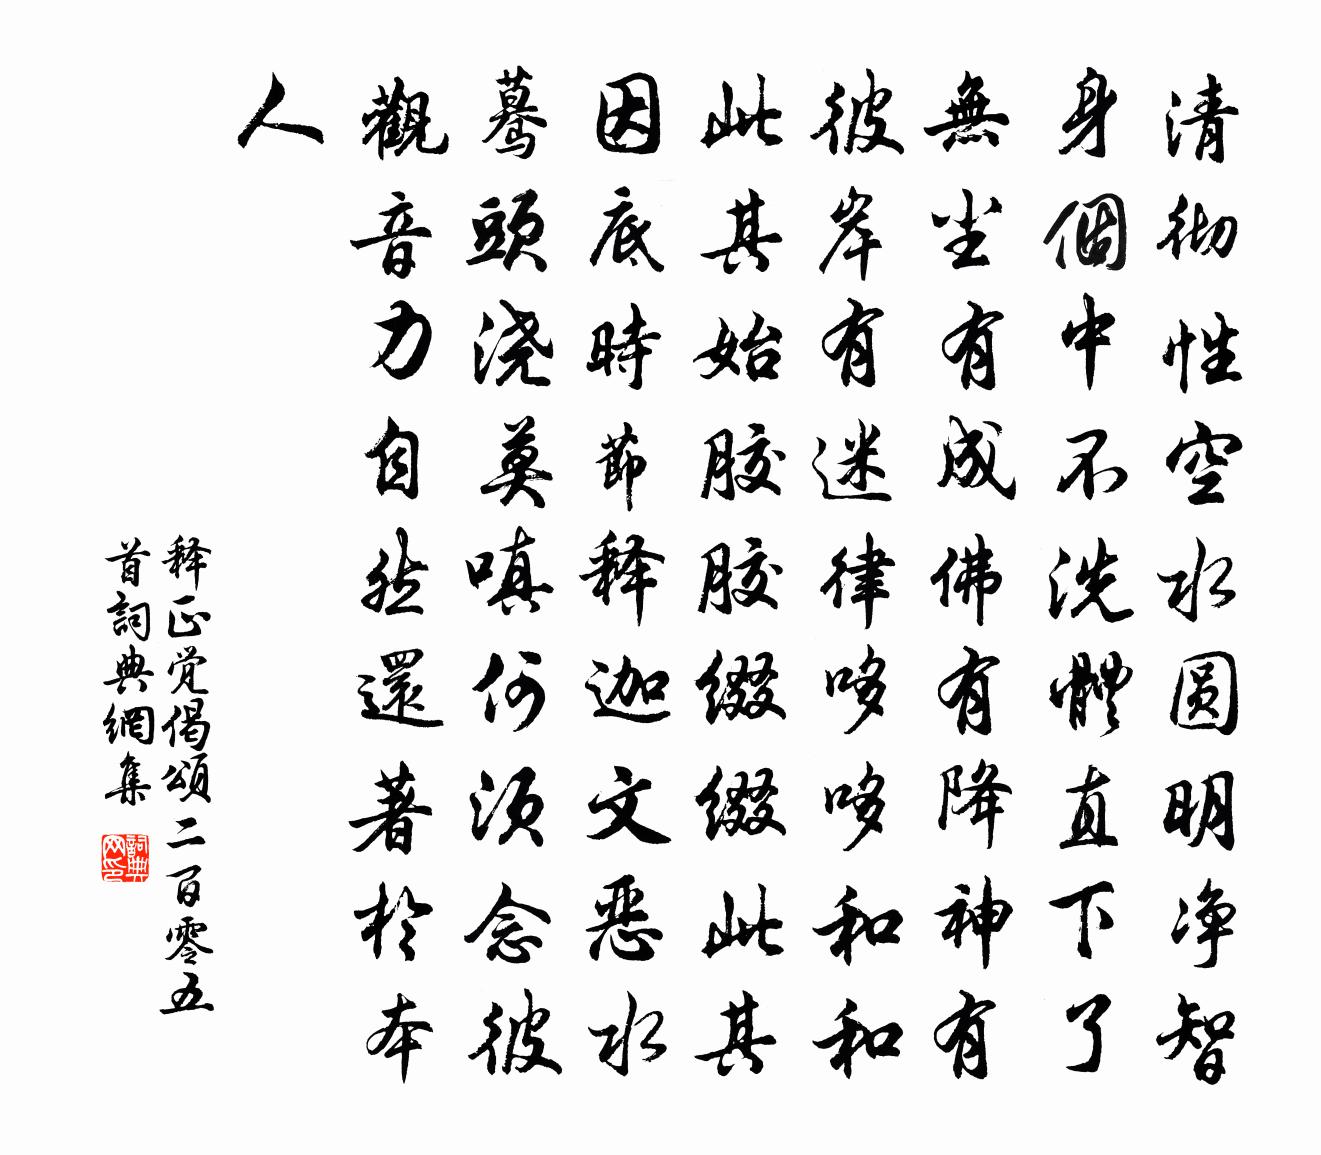 清彻性空水圆明净智
身個中不洗體直下了
無尘有成佛有降神有
彼岸有迷律哆哆和和
此其始胶胶缀缀此其
因底時節释迦文恶水
驀頭浇莫嗔何须念彼
觀音力自然還著於本
人
释正觉偈頌二百零五
首詞典網集
詞典网印